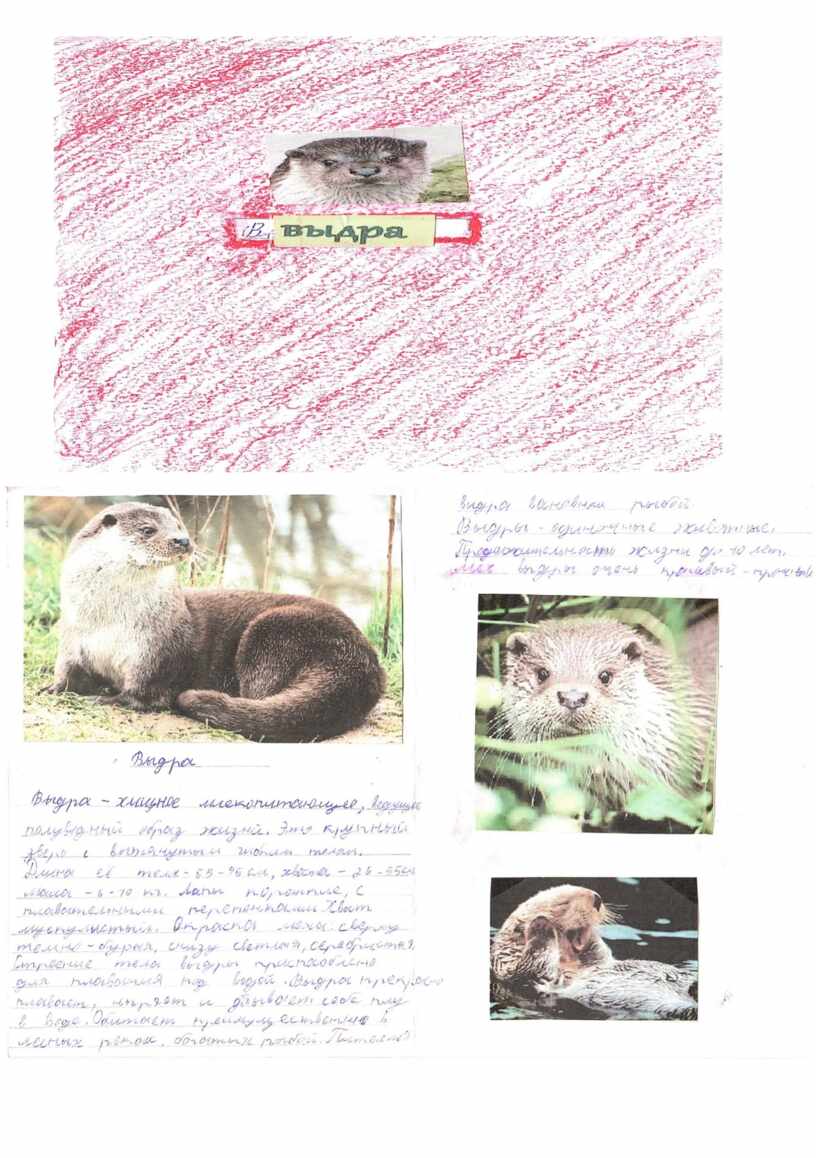 (В
выдра
Выдра
Выдра - хищное млекопитающее, ведущее
полуводный образ жизни. Это крупный
зверь с вытянутым гибким телом.
Длина её тела - 55 - 95 см, хвоста - 26 - 55 см
масса - 6 - 10 кг. Лапы короткие, с
плавательными перепонками. Хвост
мускулистый. Окраска меха: сверху
темно - бурая, снизу светлая, серебристая.
Строение тела выдры приспособлено
для плавания под водой. Выдра прекрасно
плавает, ныряет и добывает себе пищу
в воде. Обитает преимущественно в
лесных реках, богатых рыбой.
выдра рыбой
Выдры - одиночные животные.
Продолжительность жизни до 10 лет.
Мех выдры очень красивый - прочный